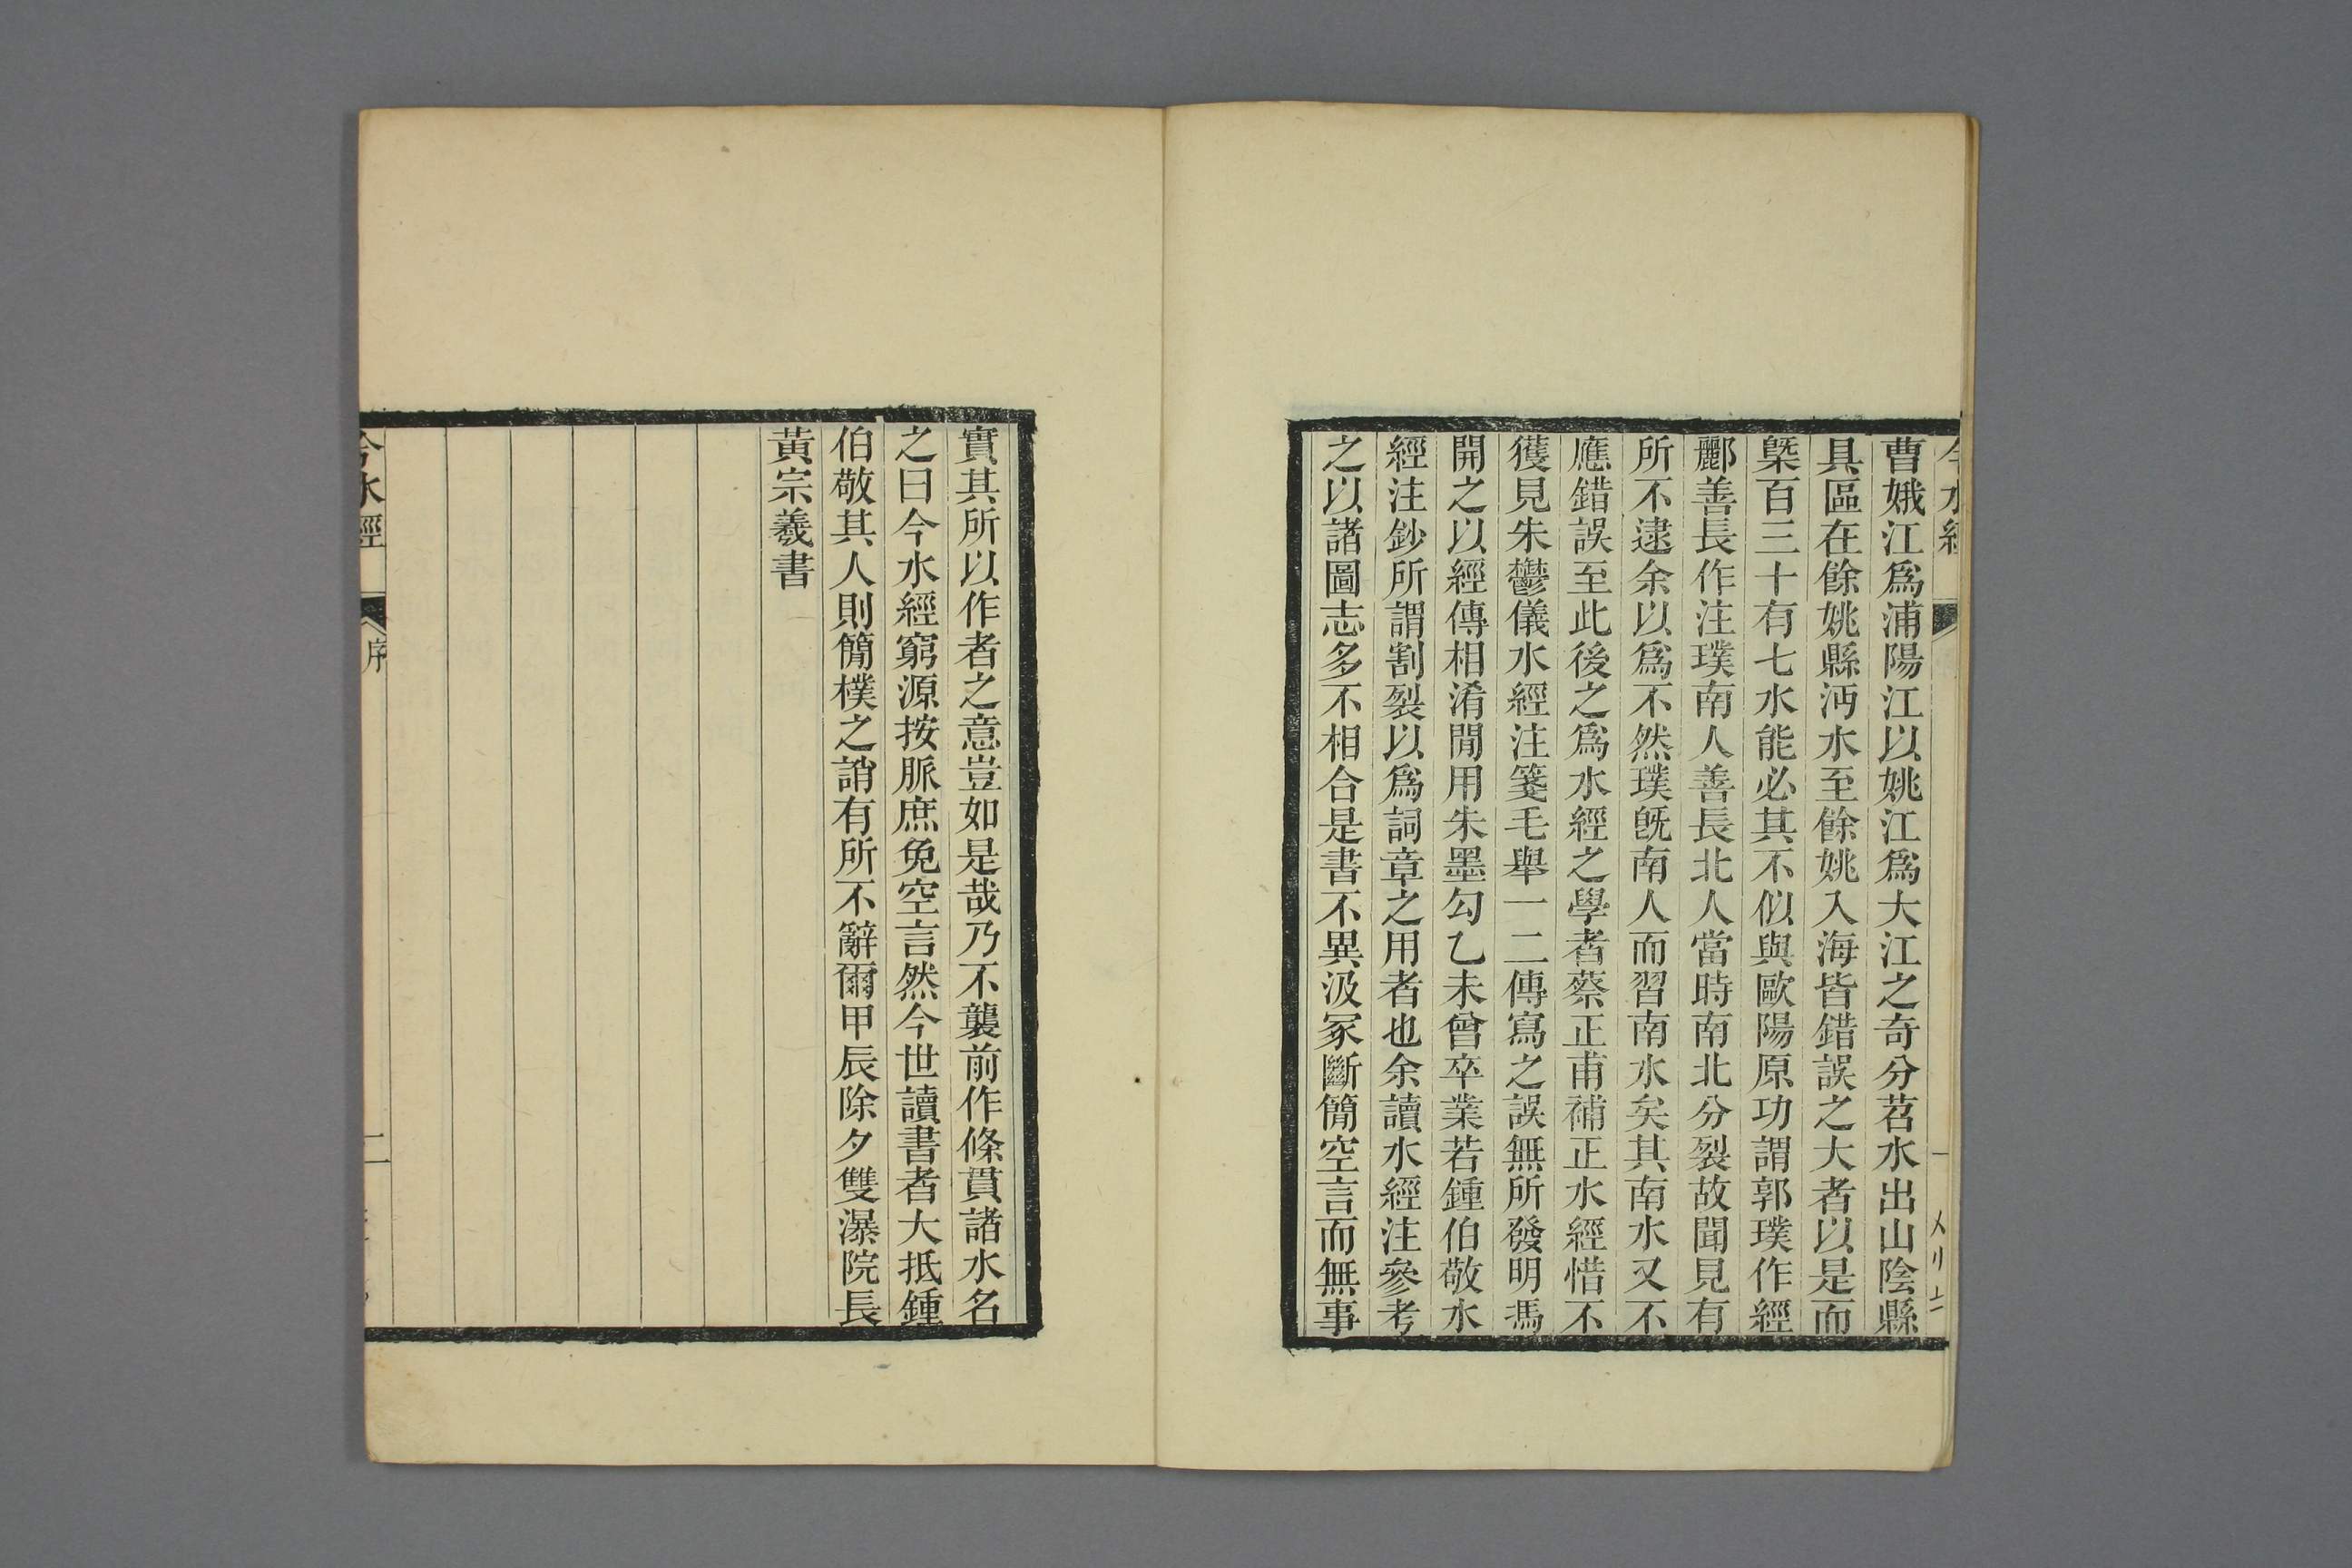 今水經
曹娥江爲浦陽江以姚江爲大江之奇分苕水出山陰縣
具區在餘姚縣沔水至餘姚入海皆錯誤之大者以是而
槩百三十有七水能必其不似與歐陽原功謂郭璞作經
酈善長作注璞南人善長北人當時南北分裂故聞見有
所不逮余以爲不然璞旣南人而習南水矣其南水又不
應錯誤至此後之爲水經之學者蔡正甫補正水經惜不
獲見朱鬱儀水經注箋毛舉一二傳寫之誤無所發明馮
開之以經傳相淆閒用朱墨勾乙未曾卒業若鍾伯敬水
經注鈔所謂割裂以爲詞章之用者也余讀水經注參考
之以諸圖志多不相合是書不異汲冢斷簡空言而無事
實其所以作者之意豈如是哉乃不襲前作條貫諸水名
之曰今水經窮源按脈庶免空言然今世讀書者大抵鍾
伯敬其人則簡樸之誚有所不辭爾甲辰除夕雙瀑院長
黃宗羲書
今水經
序
二